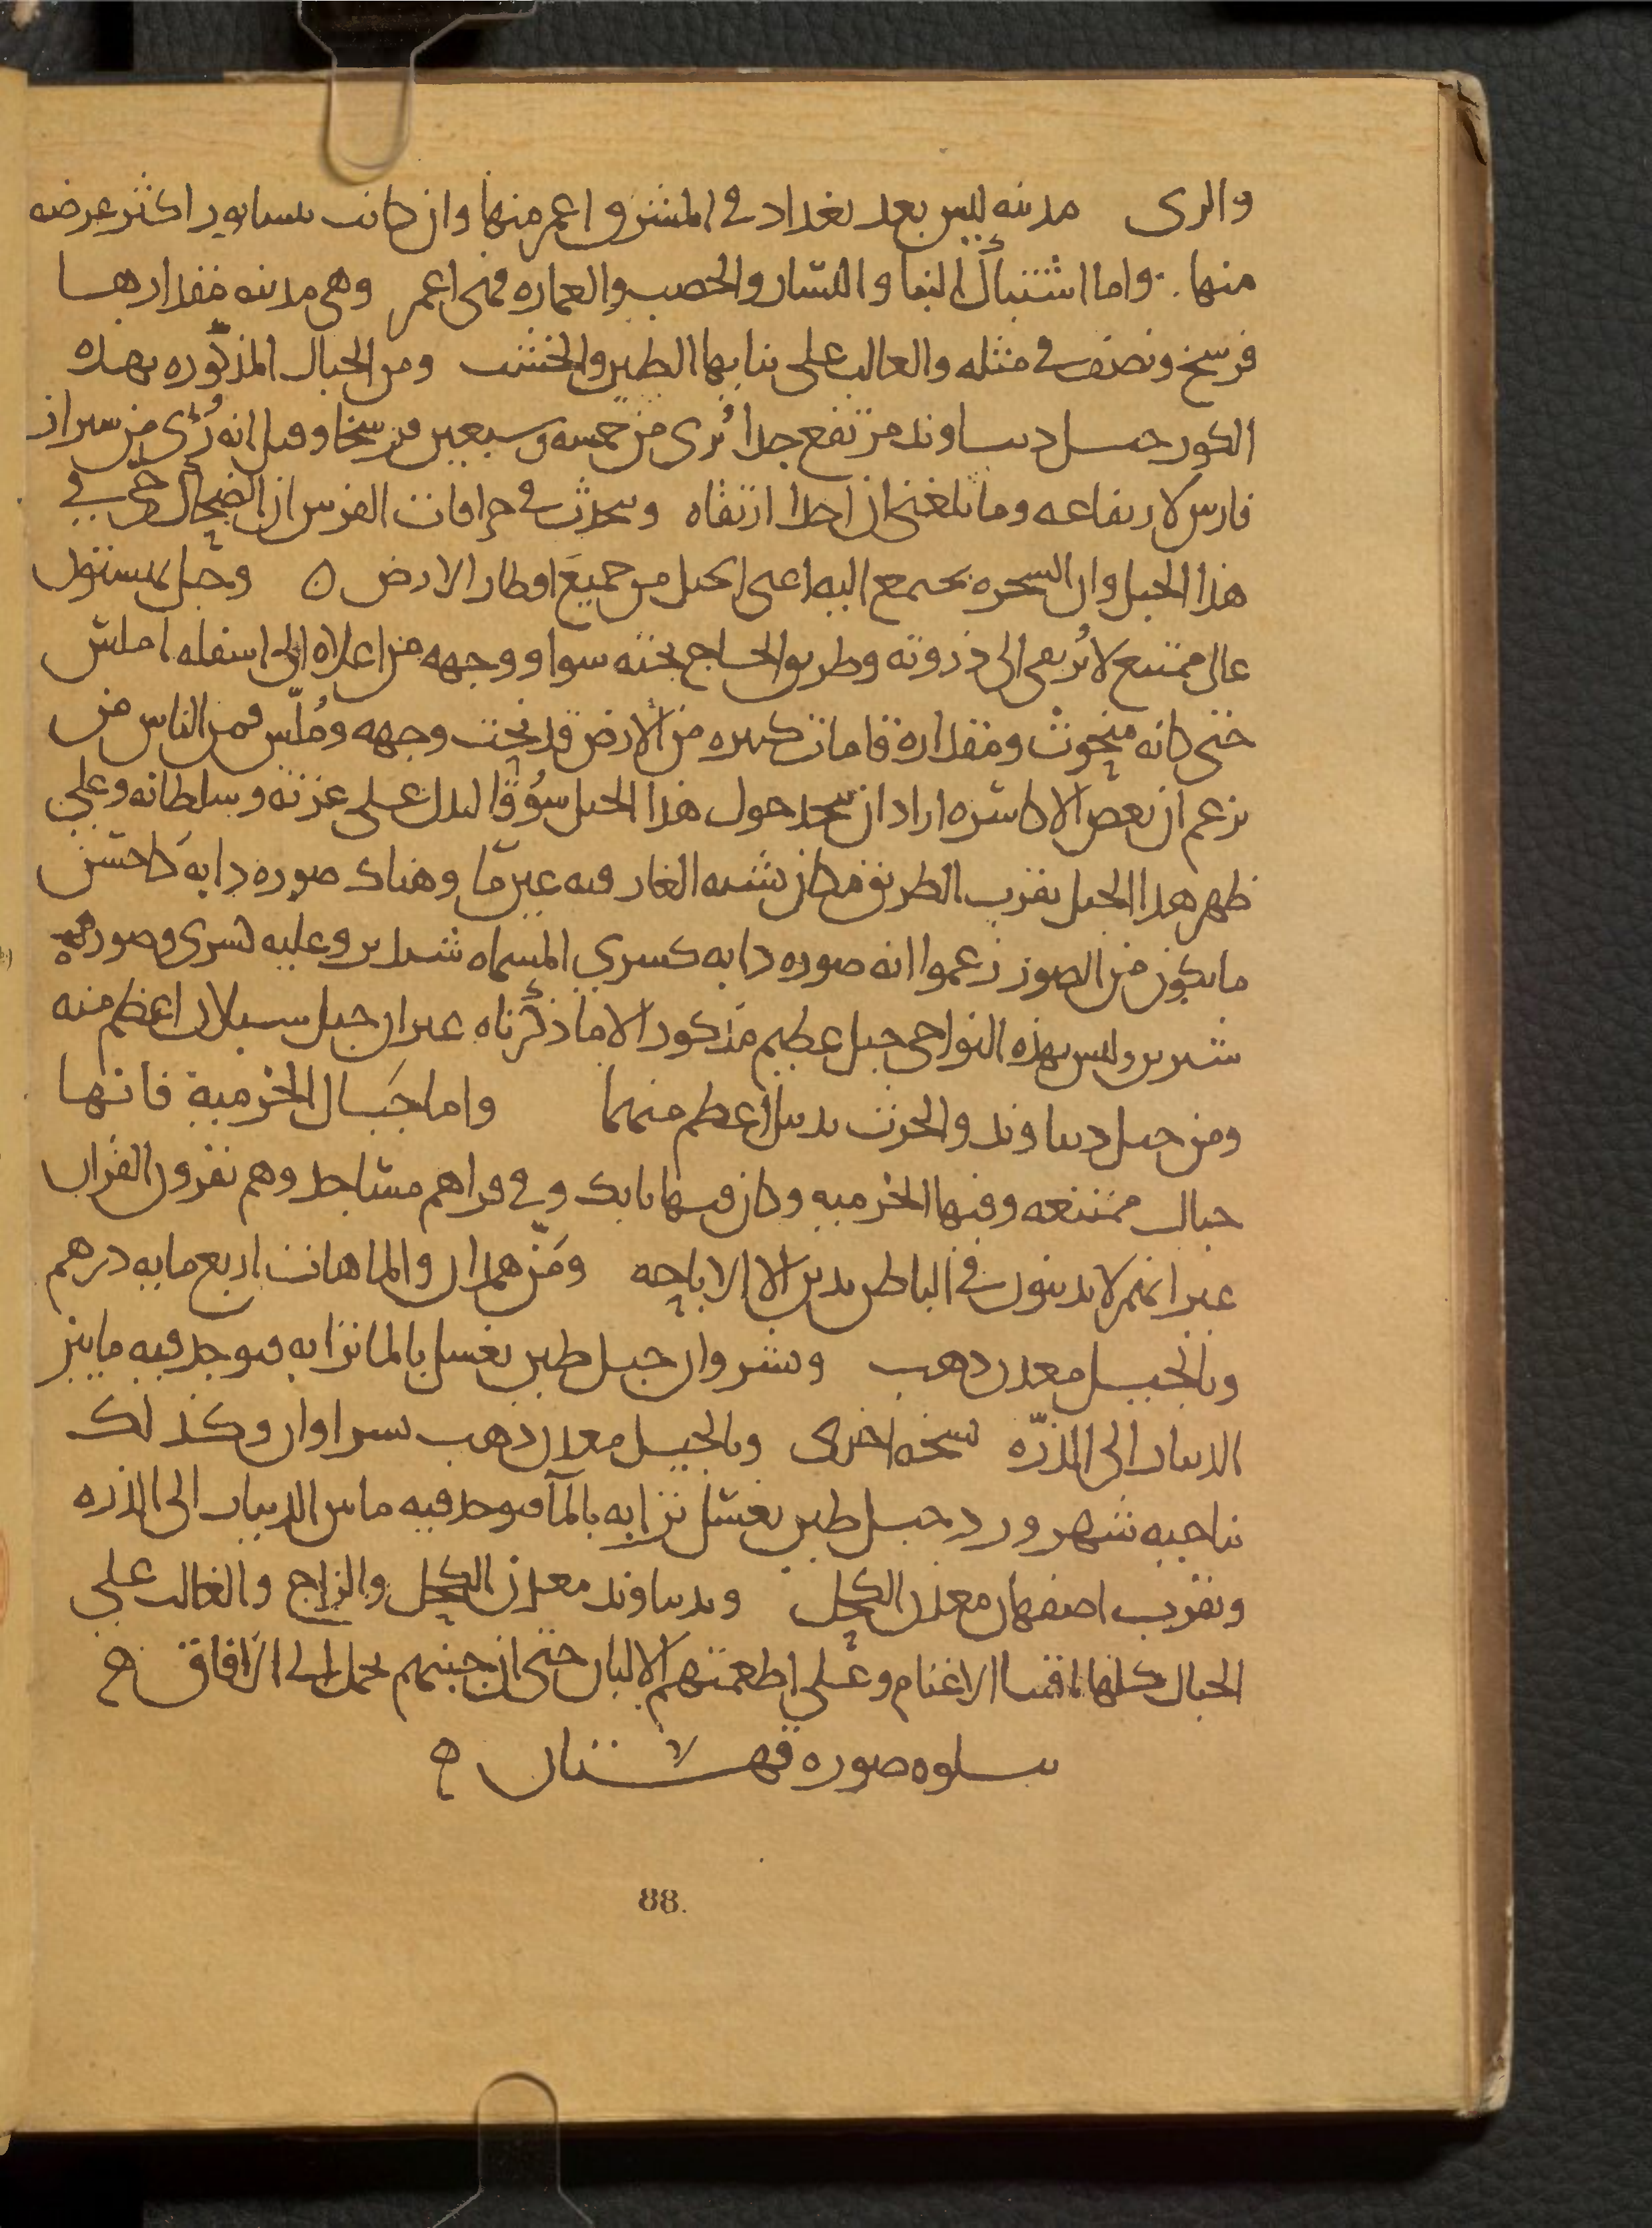 والرى مدينه ليس بعد بغداد فى المشرق اعمر منها وان كانت نيسابور اكثر عرضه
منها. واما اشتباك البنا واليسار والخصب والعماره فهى اعمر وهى مدينه مقدارها
فرسخ ونصف فى مثله والغالب على بنايها الطين والخشب ومن الجبال المذكوره بهذه
الكور جبل دنباوند مرتفع جدا يُرى من خمسه وسبعين فرسخا وقيل انه رُئى من سيراز
فارس لارتفاعه وما بلغنى ان احدا ارتقاه ويتحدث فى خرافات الفرس ان الضحاك حى فى
هذا الجبل وان السحره يجتمع اليه اعنى الجبل من جميع اقطار الارض ه وجبل بيستون
عالى ممتنع لا يُرتقى الى ذروته وطريق الحاج تحته سوا ووجهه من اعلاه الى اسفله املس
حتى كانه منحوت ومقداره قامات كثيره من الارض قد نحت وجهه ومُلّس فمن الناس من
يزعم ان بعض الاكاسره اراد ان يتخذ حول هذا الجبل سُوقا ليدل على عزته وسلطانه وعلى
ظهر هذا الجبل بقرب الطريق مكان يشبه الغار فيه عين ما وهناك صوره دابه كاحسن
ما يكون من الصور زعموا انه صوره دابه كسرى المسماه شبديز وعليه كسرى وصوره
شيرين وليس بهذه النواحى جبل عظيم مذكور الا ما ذكرناه غير ان جبل سبلان اعظم منه
ومن جبل دنباوند والحرث بدبيل اعظم منهما واما جبال الخرمية فانها
جبال ممتنعه وفيها الخرميه وكان فيها بابك وفى قراهم مساجد وهم يقرون القران
غير انهم لا يدينون فى الباطن بدين الا الاباحه ومَنّ همذان والماهات اربع مايه درهم
وبالجبيل معدن ذهب وبشروان جبل طين يغسل بالما ترابه فيوجد فيه ما بين
الدينار الى الذرّه نسخه اخرى وبالجبيل معدن ذهب بسراوان وكذلك
ناحيه شهرورد جبل طين يغسل ترابه بالمآ فيوجد فيه ما بين الدينار الى الذره
وبقرب اصفهان معدن الكحل وبدنباوند معدن الكحل والزاج والغالب على
الجبال كلها اقتنا الاغنام وعلى اطعمتهم الالبان حتى ان جبنهم يحمل الى الافاق ه
يتلوه صوره قهستان ه
88.